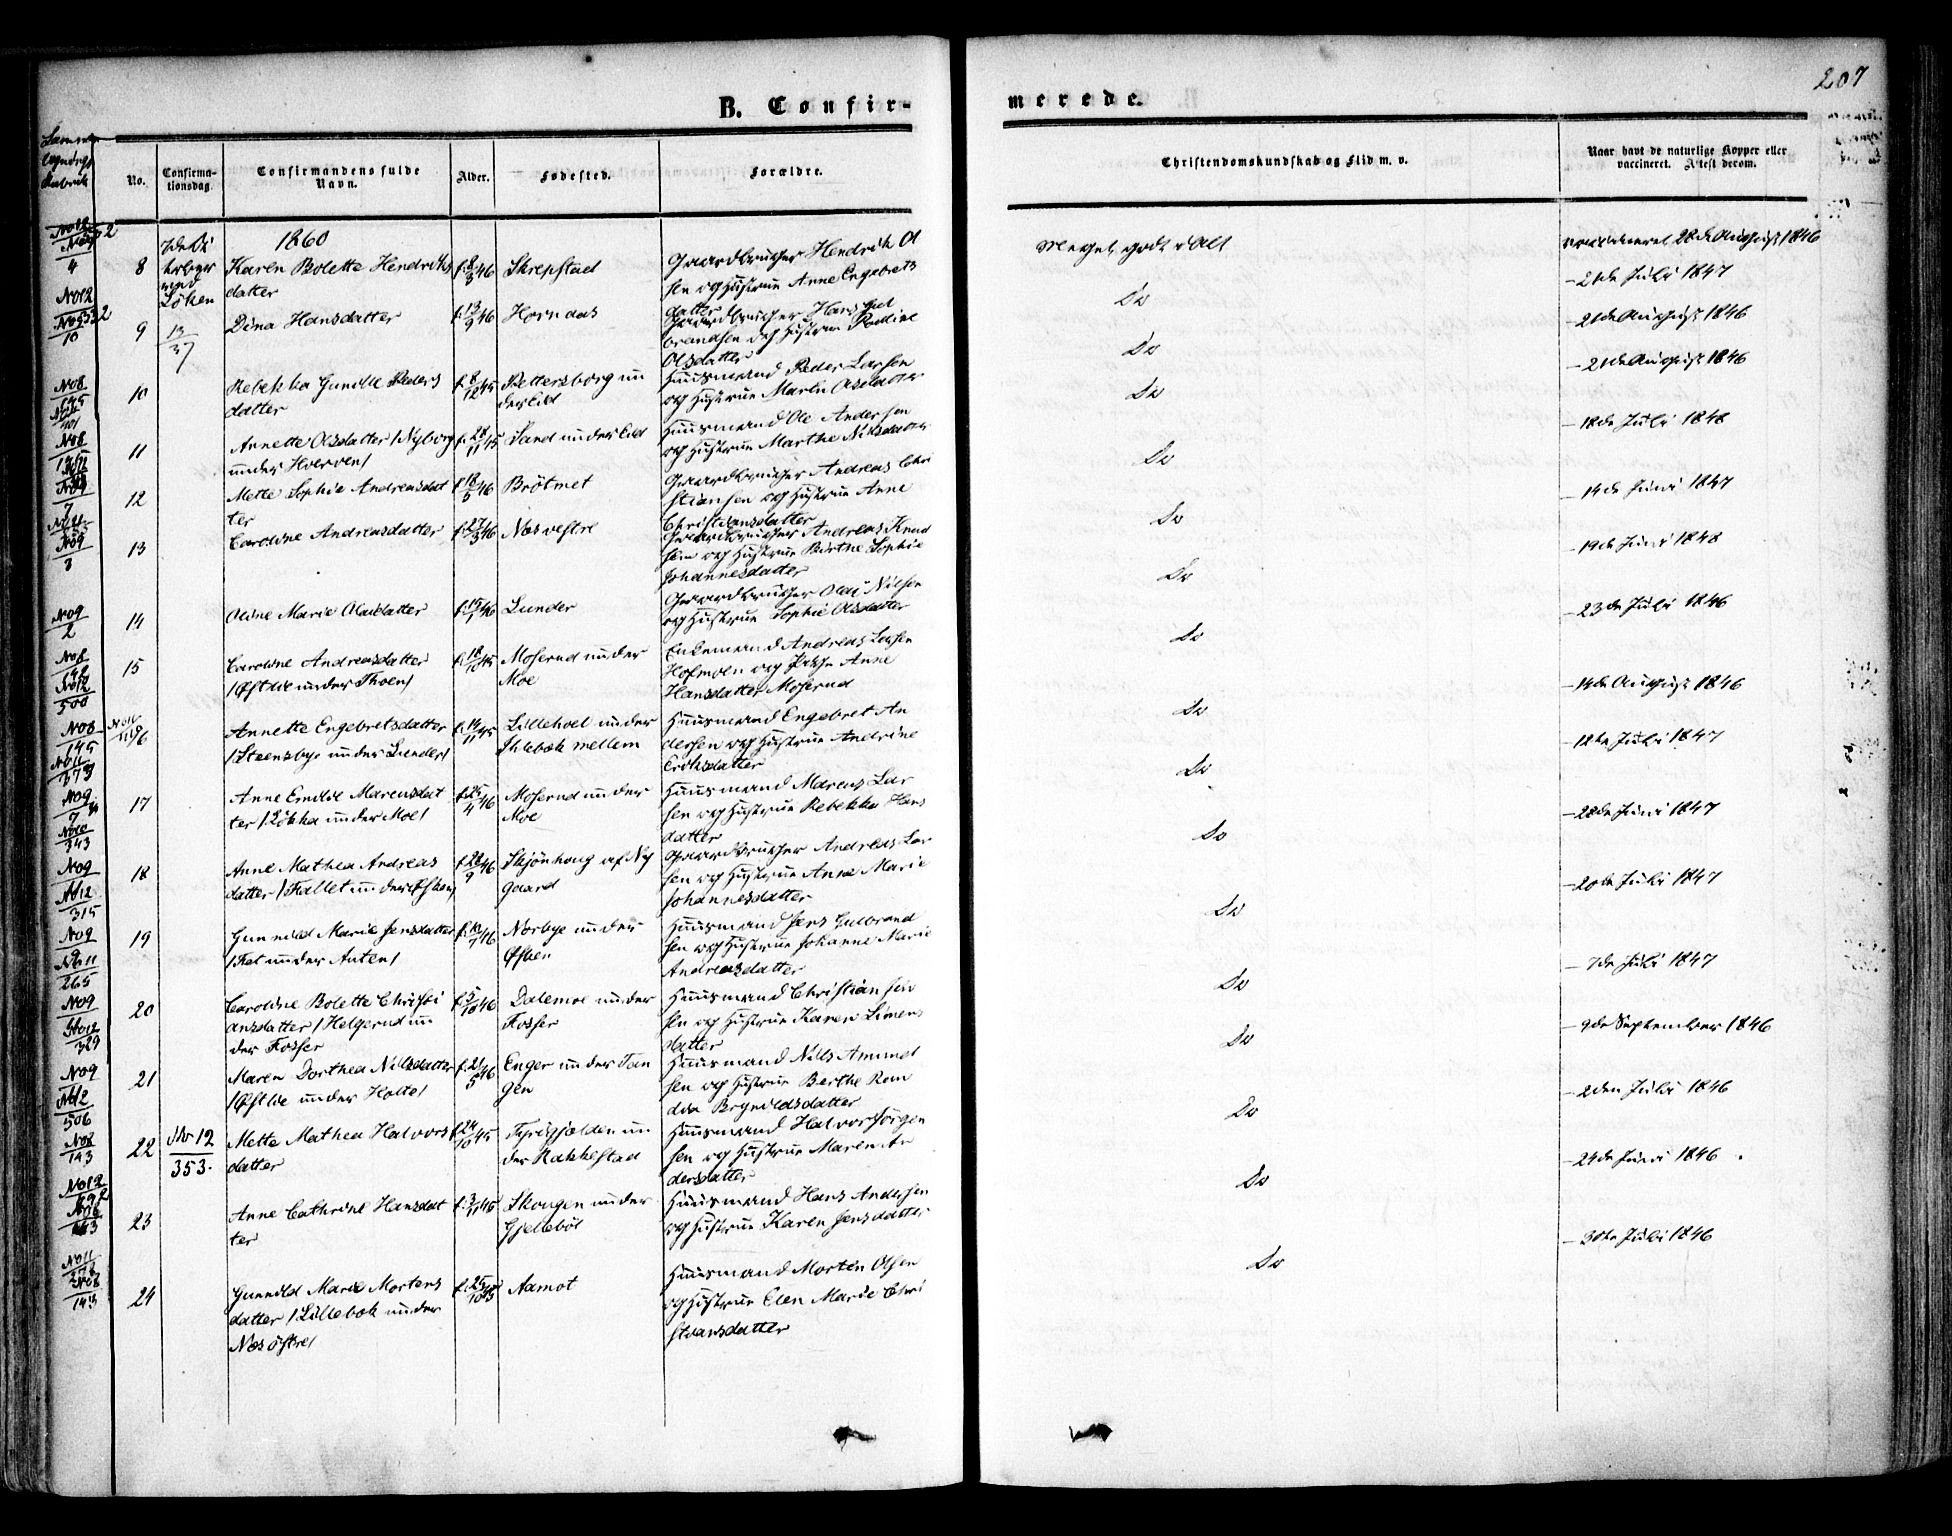 B. Confir-
merede.
207
No.
Confirma-
tionsdag.
Confirmandens fulde
Navn.
Alder.
Fødested.
Forældre.
Christendomskundskab og Flid m. v.
Naar havt de naturlige Kopper eller
vaccineret. Attest derom.
1860
8 Karen Bolette Hendriks
datter
f. 8/3 46
Skrepstad
Gaardbruger Hendrik Ol
sen og Hustrue Anne Engebrets
datter
Meget godt i Alt
vaccineret 28de August 1846
Løken
9
13/37
Dina Hansdatter
f. 13/9 46
Horndas
Gaardbruger Hans Gul
brandsen og Hustrue Pauline
Olsdatter
Do
- 21de Juli 1847
10 Rebekka Gunilde Peders
datter
f. 8/12 45
Pettersborg un
der Eid
Huusmand Peder Larsen
og Hustrue Maren Olsdatter
Do
- 21de August 1846
11 Annette Olsdatter / Nyborg
under Hverven/
f. 28/11 45
Sand under Eid
Huusmand Ole Andersen
og Hustrue Marthe Nilsdatter
Do
- 21de August 1846
12 Mette Sophie Andreasdat
ter
f. 18/5 46
Brøtmet
Gaardbruger Andreas Chri
stiansen og Hustrue Anne
Christiansdatter
Do
- 18de Juli 1848
13 Caroline Andreasdatter
f. 27/3 46
Næs vestre
Gaardbruger Andreas Knud
sen og Hustrue Birthe Sophie
Johannesdatter
Do
- 14de Juni 1847
14 Oline Marie Olaisdatter
f. 15/1 46
Lunder
Gaardbruger Olai Nilsen
og Hustrue Sophie Olsdatter
Do
- 19de Juni 1848
15 Caroline Andreasdatter
/Østlie under Thoen/
f. 18/10 45
Moserud under
Moe
Enkemand Andreas Larsen
Hofmoen og Pige Anne
Hansdatter Moserud
Do
- 23de Juli 1846
16 Annette Engebretsdatter
/Steensbye under Lunder/
f. 14/11 45
Lillehoel under
Ihlebæk mellem
Huusmand Engebret An
dersen og Hustrue Andrine
Eriksdatter
Do
- 14de August 1846
17 Anne Emilie Marensdat
ter /Løkka under Moe/
f. 25/4 46
Moserud under
Moe
Huusmand Marens Lar
sen og Hustrue Rebekka Hans
datter
Do
- 12te Juli 1847
18 Anne Mathea Andreas
datter /Fallet under Øfsken/
f. 28/9 46
Skjønhaug af Ny
gaard
Gaardbruger Andreas Lar
sen og Hustrue Anne Marie
Johannesdatter
Do
- 28de Juni 1847
19 Gunnild Marie Jensdatter
/Fiæt under Auten/
f. 10/7 46
Norbye under
Øfsken
Huusmand Jens Gulbrand
sen og Hustrue Johanne Marie
Andreasdatter
Do
- 20de Juli 1847
20 Caroline Bolette Christi
ansdatter /Helgerud un
der Fosser
f. 5/10 46
Dalemoe under
Fosser
Huusmand Christian Siv
sen og Hustrue Karen Simens
datter
Do
- 7de Juli 1847
21 Maren Dorthea Nilsdatter
/Østlie under Holte/
f. 21/5 46
Enger under Tan
gen
Huusmand Nils Amund
sen og Hustrue Berthe Ran
dia Brynildsdatter
Do
- 9de September 1846
22
No 12
353.
Mette Mathea Halvors
datter
f. 24/10 45
Fyrigjelden un
der Rakkestad
Huusmand Halvor Jørgen
sen og Hustrue Maren An
dersdatter
Do
- 2den Juli 1846
23 Anne Cathrine Hansdat
ter
f. 3/11 45
Skougen under
Gjellebøl
Huusmand Hans Andersen
og Hustrue Karen Jensdatter
Do
- 24de Juni 1846
24 Gunnild Marie Mortens
datter /Lillebæk under
Næs østre/
f. 25/10 45
Aamot
Huusmand Morten Olsen
og Hustrue Elen Marie Chri
stiansdatter
Do
- 30te Juli 1846